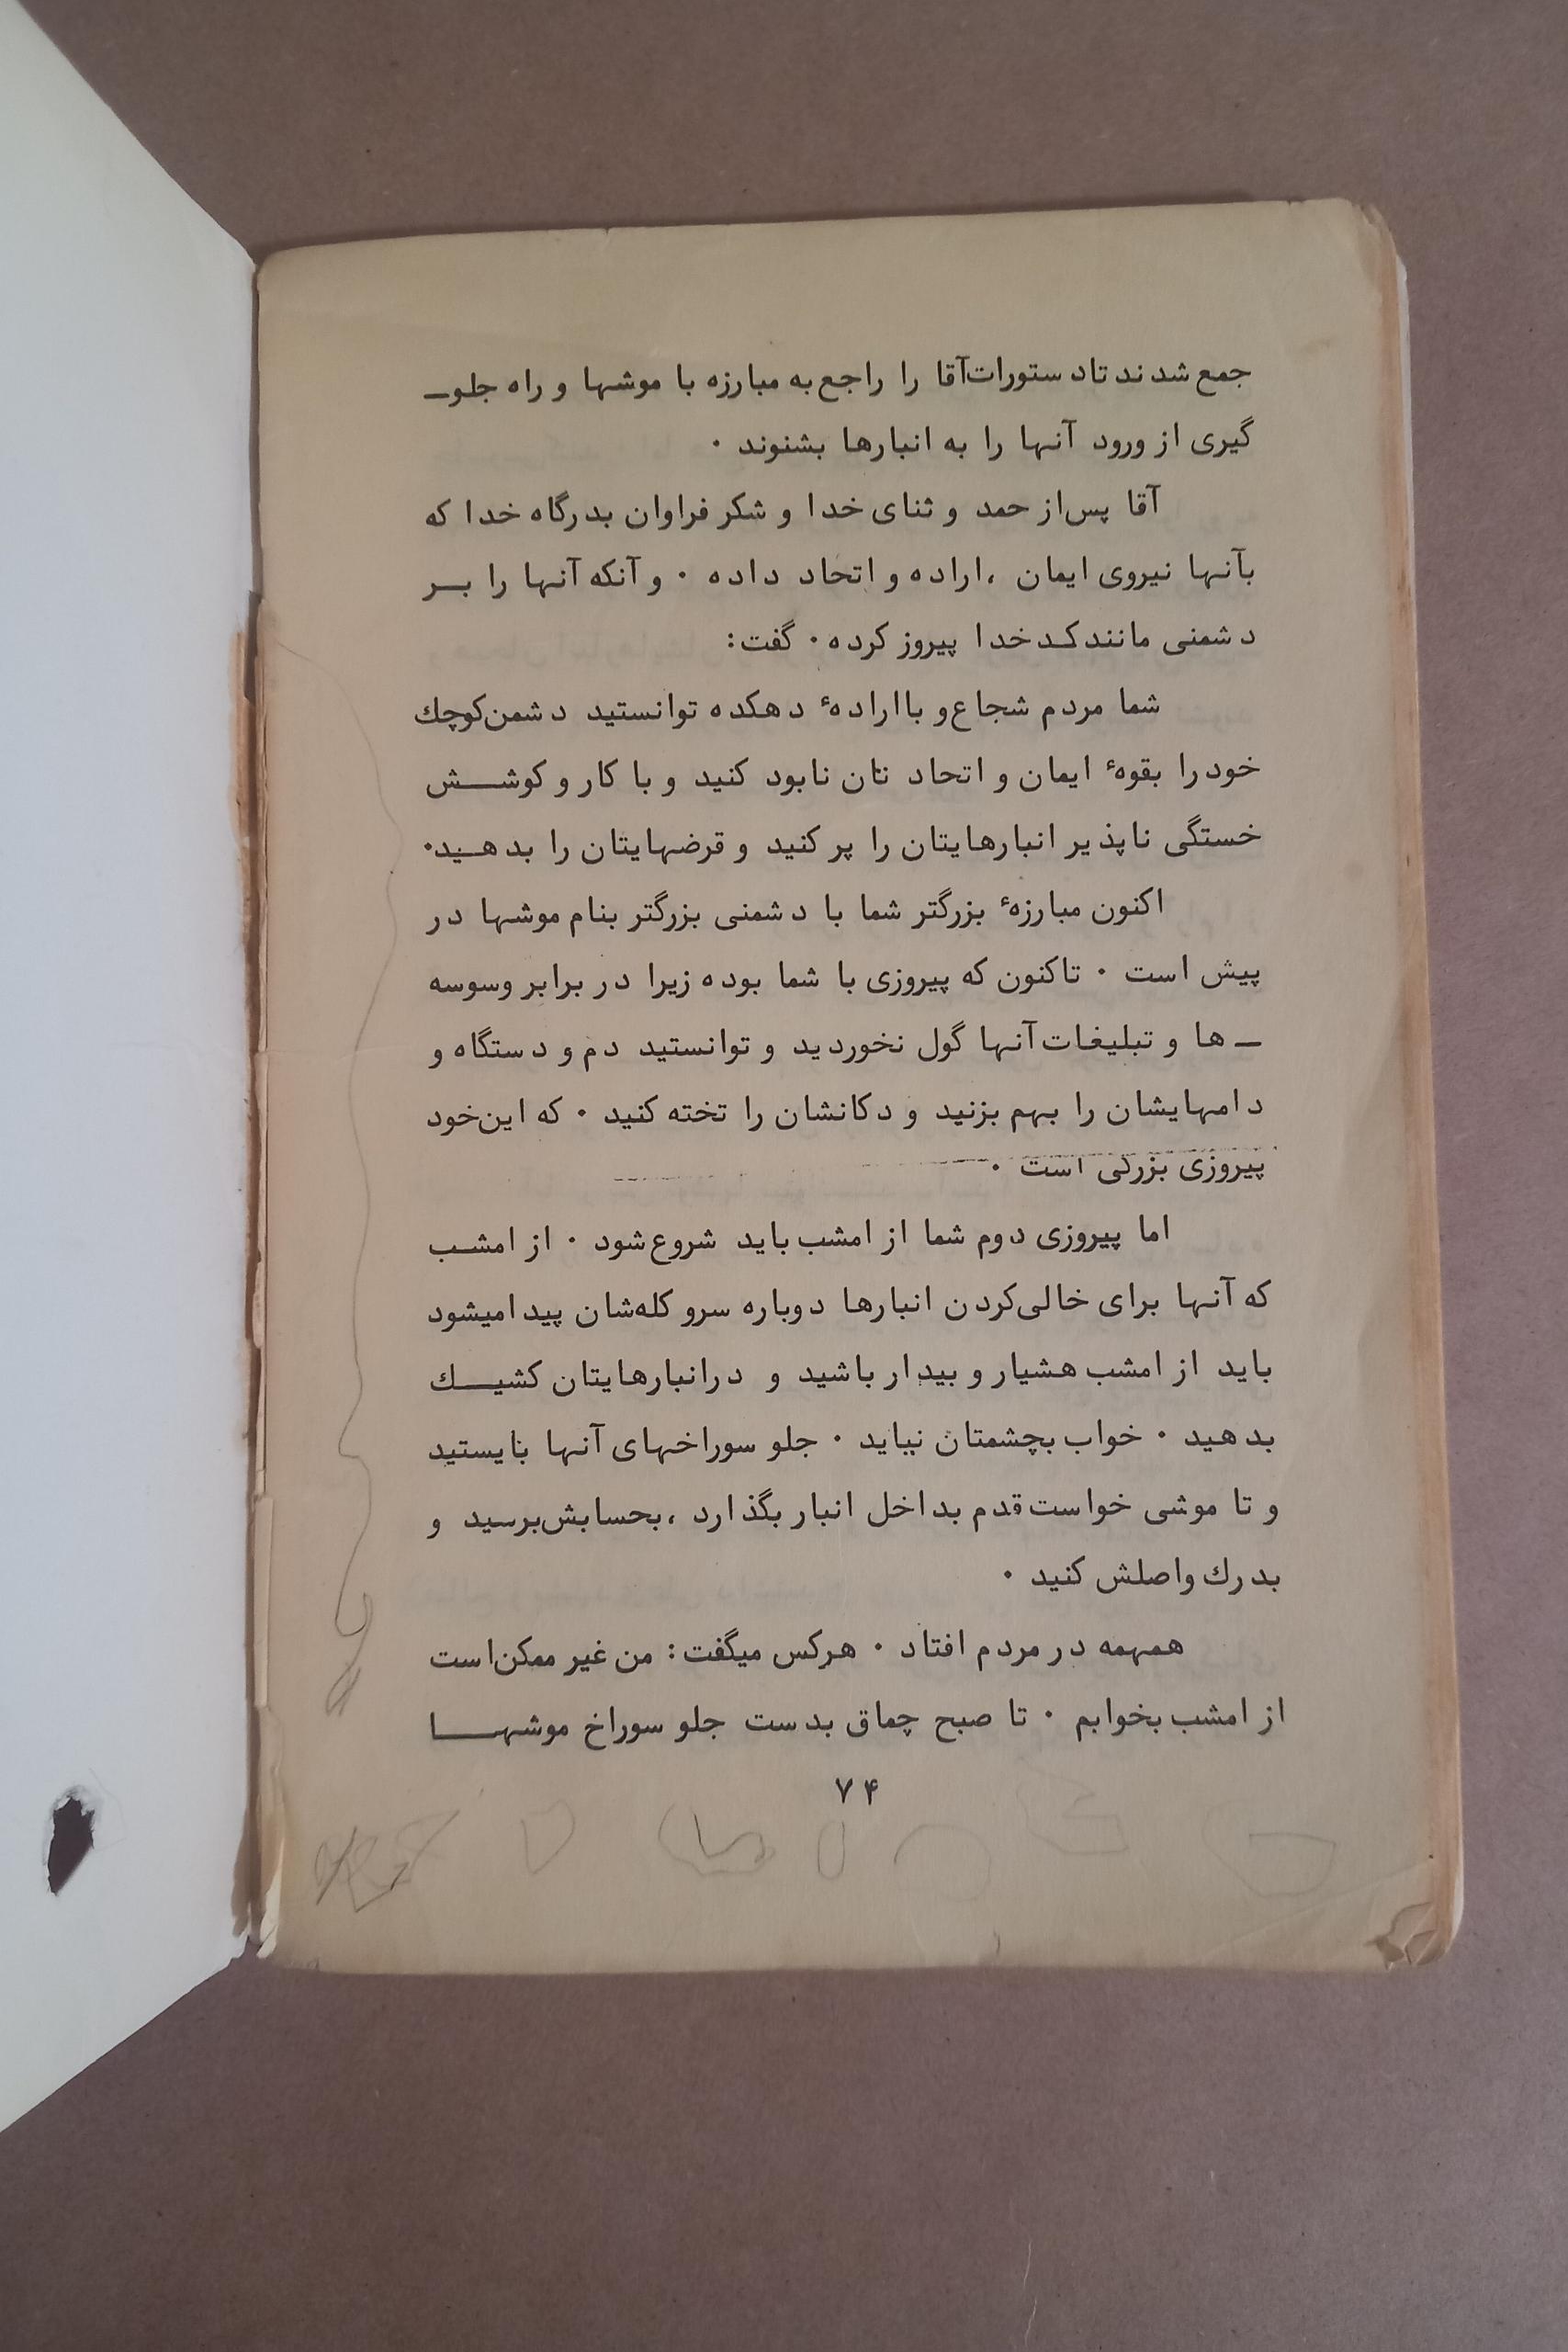 جمع شدند تا دستورات آقا را راجع به مبارزه با موشها و راه جلو‌ـ
گیری از ورود آنها را به انبارها بشنوند .
آقا پس‌از حمد و ثنای خدا و شکر فراوان بدرگاه خدا که
بآنها نیروی ایمان ،اراده و اتحاد داده . و آنکه آنها را بــر
دشمنی مانند کـدخدا پیروز کرده . گفت:
شما مردم شجاع و با ارادهٔ دهکده توانستید دشمن کوچك
خود را بقوهٔ ایمان و اتحاد تان نابود کنید و با کار و کوشــش
خستگی ناپذیر انبارهایتان را پر کنید و قرضهایتان را بدهـید.
اکنون مبارزهٔ بزرگتر شما با دشمنی بزرگتر بنام موشها در
پیش است . تاکنون که پیروزی با شما بوده زیرا در برابر وسوسه
ـ ها و تبلیغات آنها گول نخوردید و توانستید دم و دستگاه و
دامهایشان را بهم بزنید و دکانشان را تخته کنید . که این‌خود
پیروزی بزرگی است .
اما پیروزی دوم شما از امشب باید شروع شود . از امشـب
که آنها برای خالی‌کردن انبارها دوباره سرو کله‌شان پیدامیشود
باید از امشب هشیار و بیدار باشید و درانبارهایتان کشیــك
بدهید . خواب بچشمتان نیاید . جلو سوراخهای آنها بایستید
و تا موشی خواست قدم بداخل انبار بگذارد ،بحسابش‌برسید و
بدرك واصلش کنید .
همهمه در مردم افتاد . هرکس میگفت: من غیر ممکن‌است
از امشب بخوابم . تا صبح چماق بدست جلو سوراخ موشهــا
۷۴